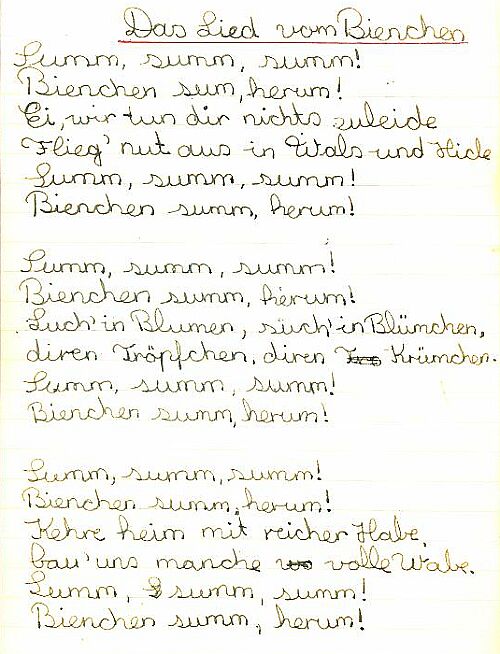 Das Lied vom Bienchen
Summ, summ, summ!
Bienchen sum, herum!
Ei, wir tun dir nichts zuleide
Flieg' nut aus in Wals und Hide
Summ, summ, summ!
Bienchen summ, herum!
Summ, summ, summ!
Bienchen summ, herum!
Such' in Blumen, such' in Blümchen,
diren Tröpfchen, diren Krümchen.
Summ, summ, summ!
Bienchen summ, herum!
Summ, summ, summ!
Bienchen summ, herum!
Kehre heim mit reicher Habe,
bau' uns manche volle Wabe.
Summ, summ, summ!
Bienchen summ, herum!